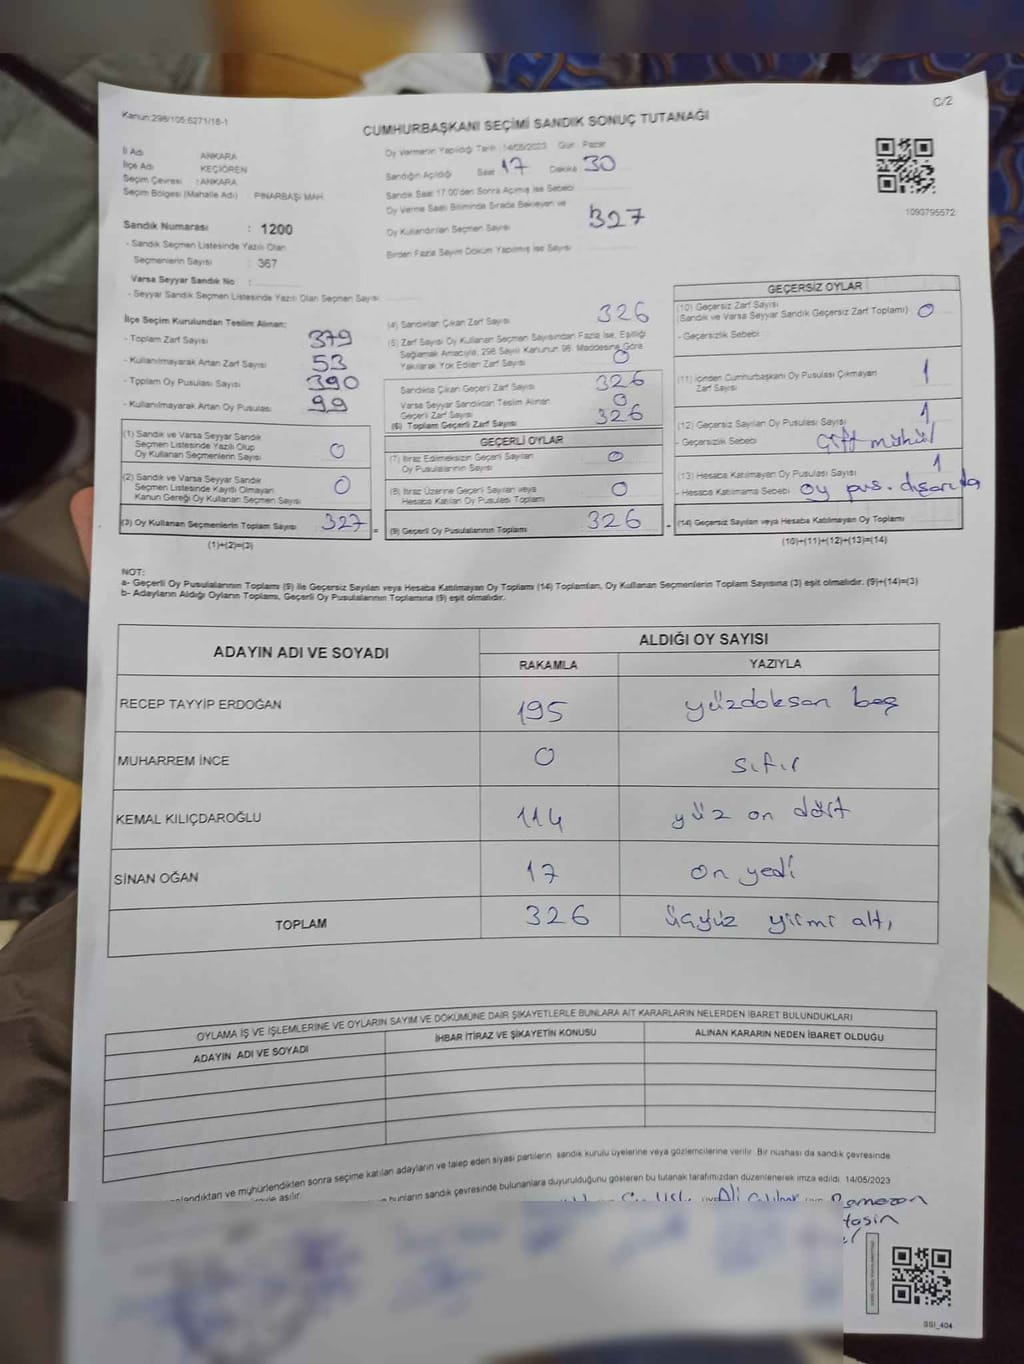 C/2
Kanun:298/105;6271/18-1
CUMHURBAŞKANI SEÇİMİ SANDIK SONUÇ TUTANAĞI
İl Adı ANKARA
İlçe Adı KEÇİÖREN
Seçim Çevresi : ANKARA
Seçim Bölgesi (Mahalle Adı) : PINARBAŞI MAH
Oy Vermenin Yapıldığı Tarih : 14/05/2023 Gün : Pazar
Sandığın Açıldığı Saat 17 Dakika 30
Sandık Saat 17:00'den Sonra Açılmış İse Sebebi
Oy Verme Saati Bitiminde Sırada Bekleyen ve
Oy Kullandırılan Seçmen Sayısı 327
Birden Fazla Sayım Döküm Yapılmış İse Sayısı
1093795572
Sandık Numarası : 1200
- Sandık Seçmen Listesinde Yazılı Olan
Seçmenlerin Sayısı : 367
Varsa Seyyar Sandık No :
- Seyyar Sandık Seçmen Listesinde Yazılı Olan Seçmen Sayısı
İlçe Seçim Kurulundan Teslim Alınan:
- Toplam Zarf Sayısı 379
- Kullanılmayarak Artan Zarf Sayısı 53
- Toplam Oy Pusulası Sayısı 390
- Kullanılmayarak Artan Oy Pusulası 99
(1) Sandık ve Varsa Seyyar Sandık
Seçmen Listesinde Yazılı Olup
Oy Kullanan Seçmenlerin Sayısı 0
(2) Sandık ve Varsa Seyyar Sandık
Seçmen Listesinde Kayıtlı Olmayan
Kanun Gereği Oy Kullanan Seçmen Sayısı 0
(3) Oy Kullanan Seçmenlerin Toplam Sayısı 327 =
(1)+(2)=(3)
(4) Sandıktan Çıkan Zarf Sayısı 326
(5) Zarf Sayısı Oy Kullanan Seçmen Sayısından Fazla İse, Eşitliği
Sağlamak Amacıyla, 298 Sayılı Kanunun 98. Maddesine Göre
Yakılarak Yok Edilen Zarf Sayısı 0
Sandıkta Çıkan Geçerli Zarf Sayısı 326
Varsa Seyyar Sandıktan Teslim Alınan
Geçerli Zarf Sayısı 0
(6) Toplam Geçerli Zarf Sayısı 326
GEÇERLİ OYLAR
(7) İtiraz Edilmeksizin Geçerli Sayılan
Oy Pusulalarının Sayısı 0
(8) İtiraz Üzerine Geçerli Sayılan veya
Hesaba Katılan Oy Pusulası Toplamı 0
(9) Geçerli Oy Pusulalarının Toplamı 326 -
GEÇERSİZ OYLAR
(10) Geçersiz Zarf Sayısı
(Sandık ve Varsa Seyyar Sandık Geçersiz Zarf Toplamı) 0
- Geçersizlik Sebebi
(11) İçinden Cumhurbaşkanı Oy Pusulası Çıkmayan
Zarf Sayısı 1
(12) Geçersiz Sayılan Oy Pusulası Sayısı 1
- Geçersizlik Sebebi Çift mühül
(13) Hesaba Katılmayan Oy Pusulası Sayısı 1
- Hesaba Katılmama Sebebi oy pus. dışarıda
(14) Geçersiz Sayılan veya Hesaba Katılmayan Oy Toplamı
(10)+(11)+(12)+(13)=(14)
NOT:
a- Geçerli Oy Pusulalarının Toplamı (9) ile Geçersiz Sayılan veya Hesaba Katılmayan Oy Toplamı (14) Toplamları, Oy Kullanan Seçmenlerin Toplam Sayısına (3) eşit olmalıdır. (9)+(14)=(3)
b- Adayların Aldığı Oyların Toplamı, Geçerli Oy Pusulalarının Toplamına (9) eşit olmalıdır.
ADAYIN ADI VE SOYADI ALDIĞI OY SAYISI
RAKAMLA YAZIYLA
RECEP TAYYİP ERDOĞAN 195 yüzdoksan beş
MUHARREM İNCE 0 sıfır
KEMAL KILIÇDAROĞLU 114 yüz on dört
SİNAN OĞAN 17 on yedi
TOPLAM 326 üçyüz yirmi altı
OYLAMA İŞ VE İŞLEMLERİNE VE OYLARIN SAYIM VE DÖKÜMÜNE DAİR ŞİKAYETLERLE BUNLARA AİT KARARLARIN NELERDEN İBARET BULUNDUKLARI
ADAYIN ADI VE SOYADI İHBAR İTİRAZ VE ŞİKAYETİN KONUSU ALINAN KARARIN NEDEN İBARET OLDUĞU
ve mühürlendikten sonra seçime katılan adayların ve talep eden siyasi partilerin sandık kurulu üyelerine veya gözlemcilerine verilir. Bir nüshası da sandık çevresinde
asılır.
bunların sandık çevresinde bulunanlara duyurulduğunu gösteren bu tutanak tarafımızdan düzenlenerek imza edildi. 14/05/2023
Ali Ramazan
SSI_404